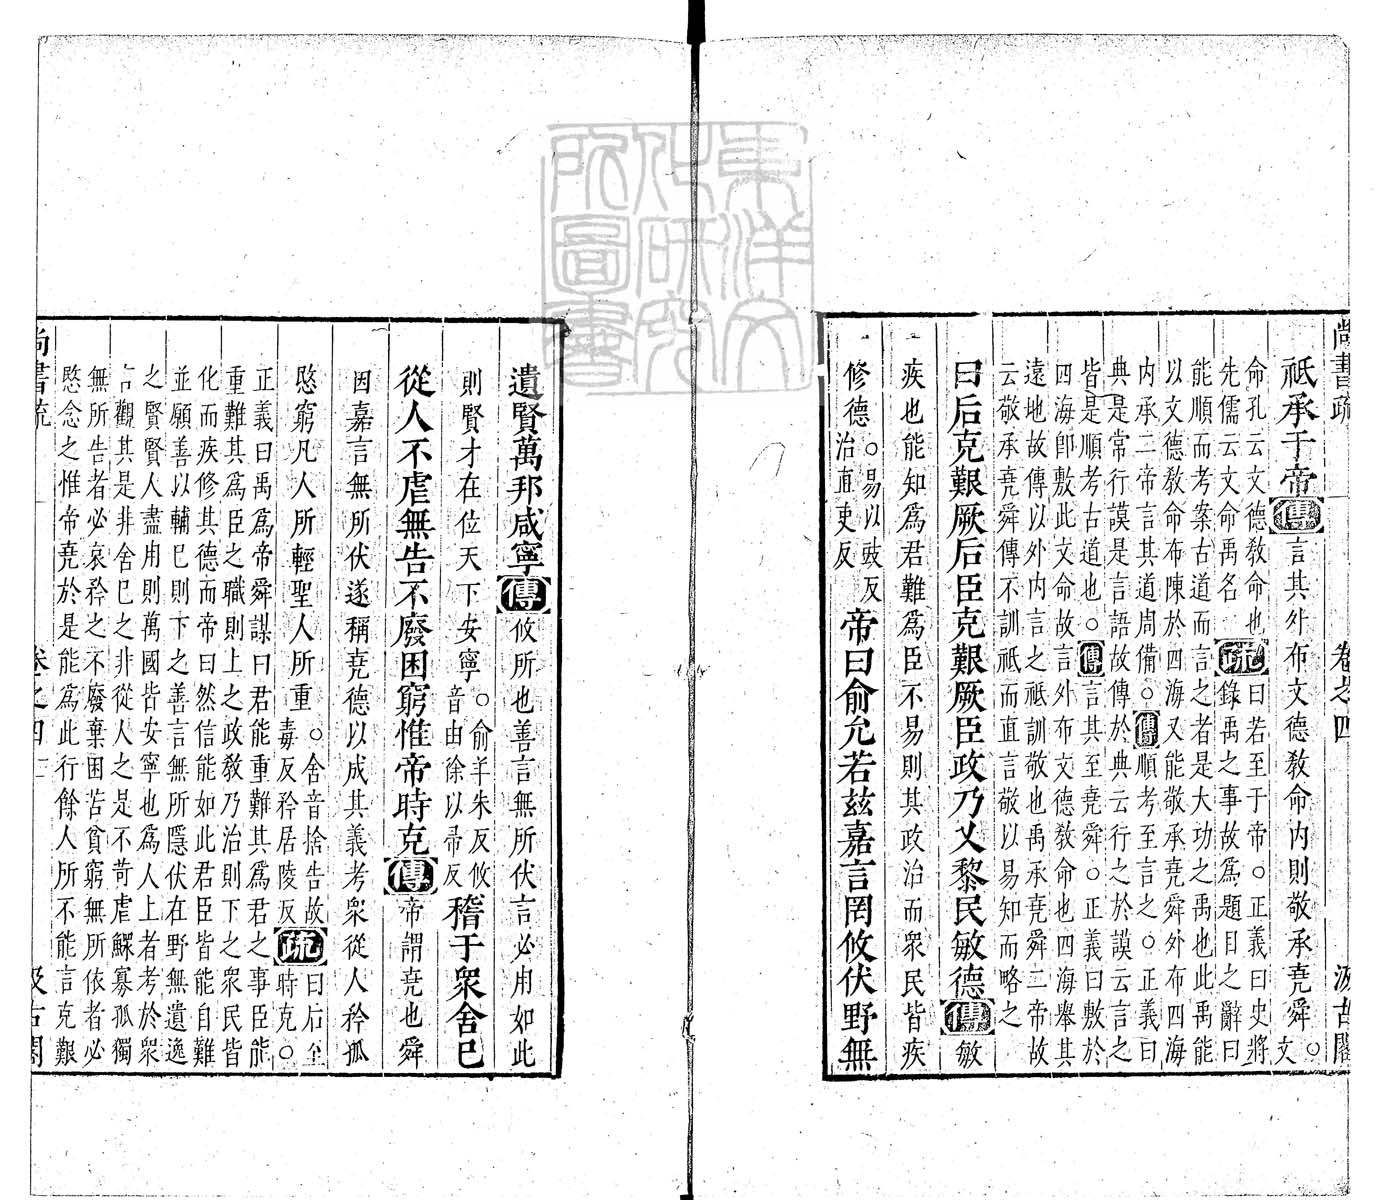 尚書疏 卷之四 汲古閣
祗承于帝傳言其外布文德敎命內則敬承堯舜○文
命孔云文德敎命也疏曰若至于帝○正義曰史將
先儒云文命禹名 錄禹之事故爲題目之辭曰
能順而考案古道而言之者是大功之禹也此禹能
以文德敎命布陳於四海又能敬承堯舜外布四海
內承二帝言其道周備○傳順考至言之○正義曰
典是常行謨是言語故傳於典云行之於謨云言之
皆是順考古道也○傳言其至堯舜○正義曰敷於
四海卽敷此文命故言外布文德敎命也四海舉其
遠地故傳以外內言之祗訓敬也禹承堯舜二帝故
云敬承堯舜傳不訓祗而直言敬以易知而略之
曰后克艱厥后臣克艱厥臣政乃乂黎民敏德傳敏
疾也能知爲君難爲臣不易則其政治而衆民皆疾
修德○易以豉反
治直吏反帝曰俞允若茲嘉言罔攸伏野無
遺賢萬邦咸寧傳攸所也善言無所伏言必用如此
則賢才在位天下安寧○俞羊朱反攸
音由徐以帚反稽于衆舍己
從人不虐無告不廢困窮惟帝時克傳帝謂堯也舜
因嘉言無所伏遂稱堯德以成其義考衆從人矜孤
愍窮凡人所輕聖人所重○舍音捨告故
毒反矜居陵反疏曰后至
時克○
正義曰禹爲帝舜謀曰君能重難其爲君之事臣能
重難其爲臣之職則上之政敎乃治則下之衆民皆
化而疾修其德而帝曰然信能如此君臣皆能自難
並願善以輔己則下之善言無所隱伏在野無遺逸
之賢賢人盡用則萬國皆安寧也爲人上者考於衆
言觀其是非舍己之非從人之是不苛虐鰥寡孤獨
無所告者必哀矜之不廢棄困苦貧窮無所依者必
愍念之惟帝堯於是能爲此行餘人所不能言克艱
尚書疏 卷之四 二 汲古閣
東洋文化研究所圖書